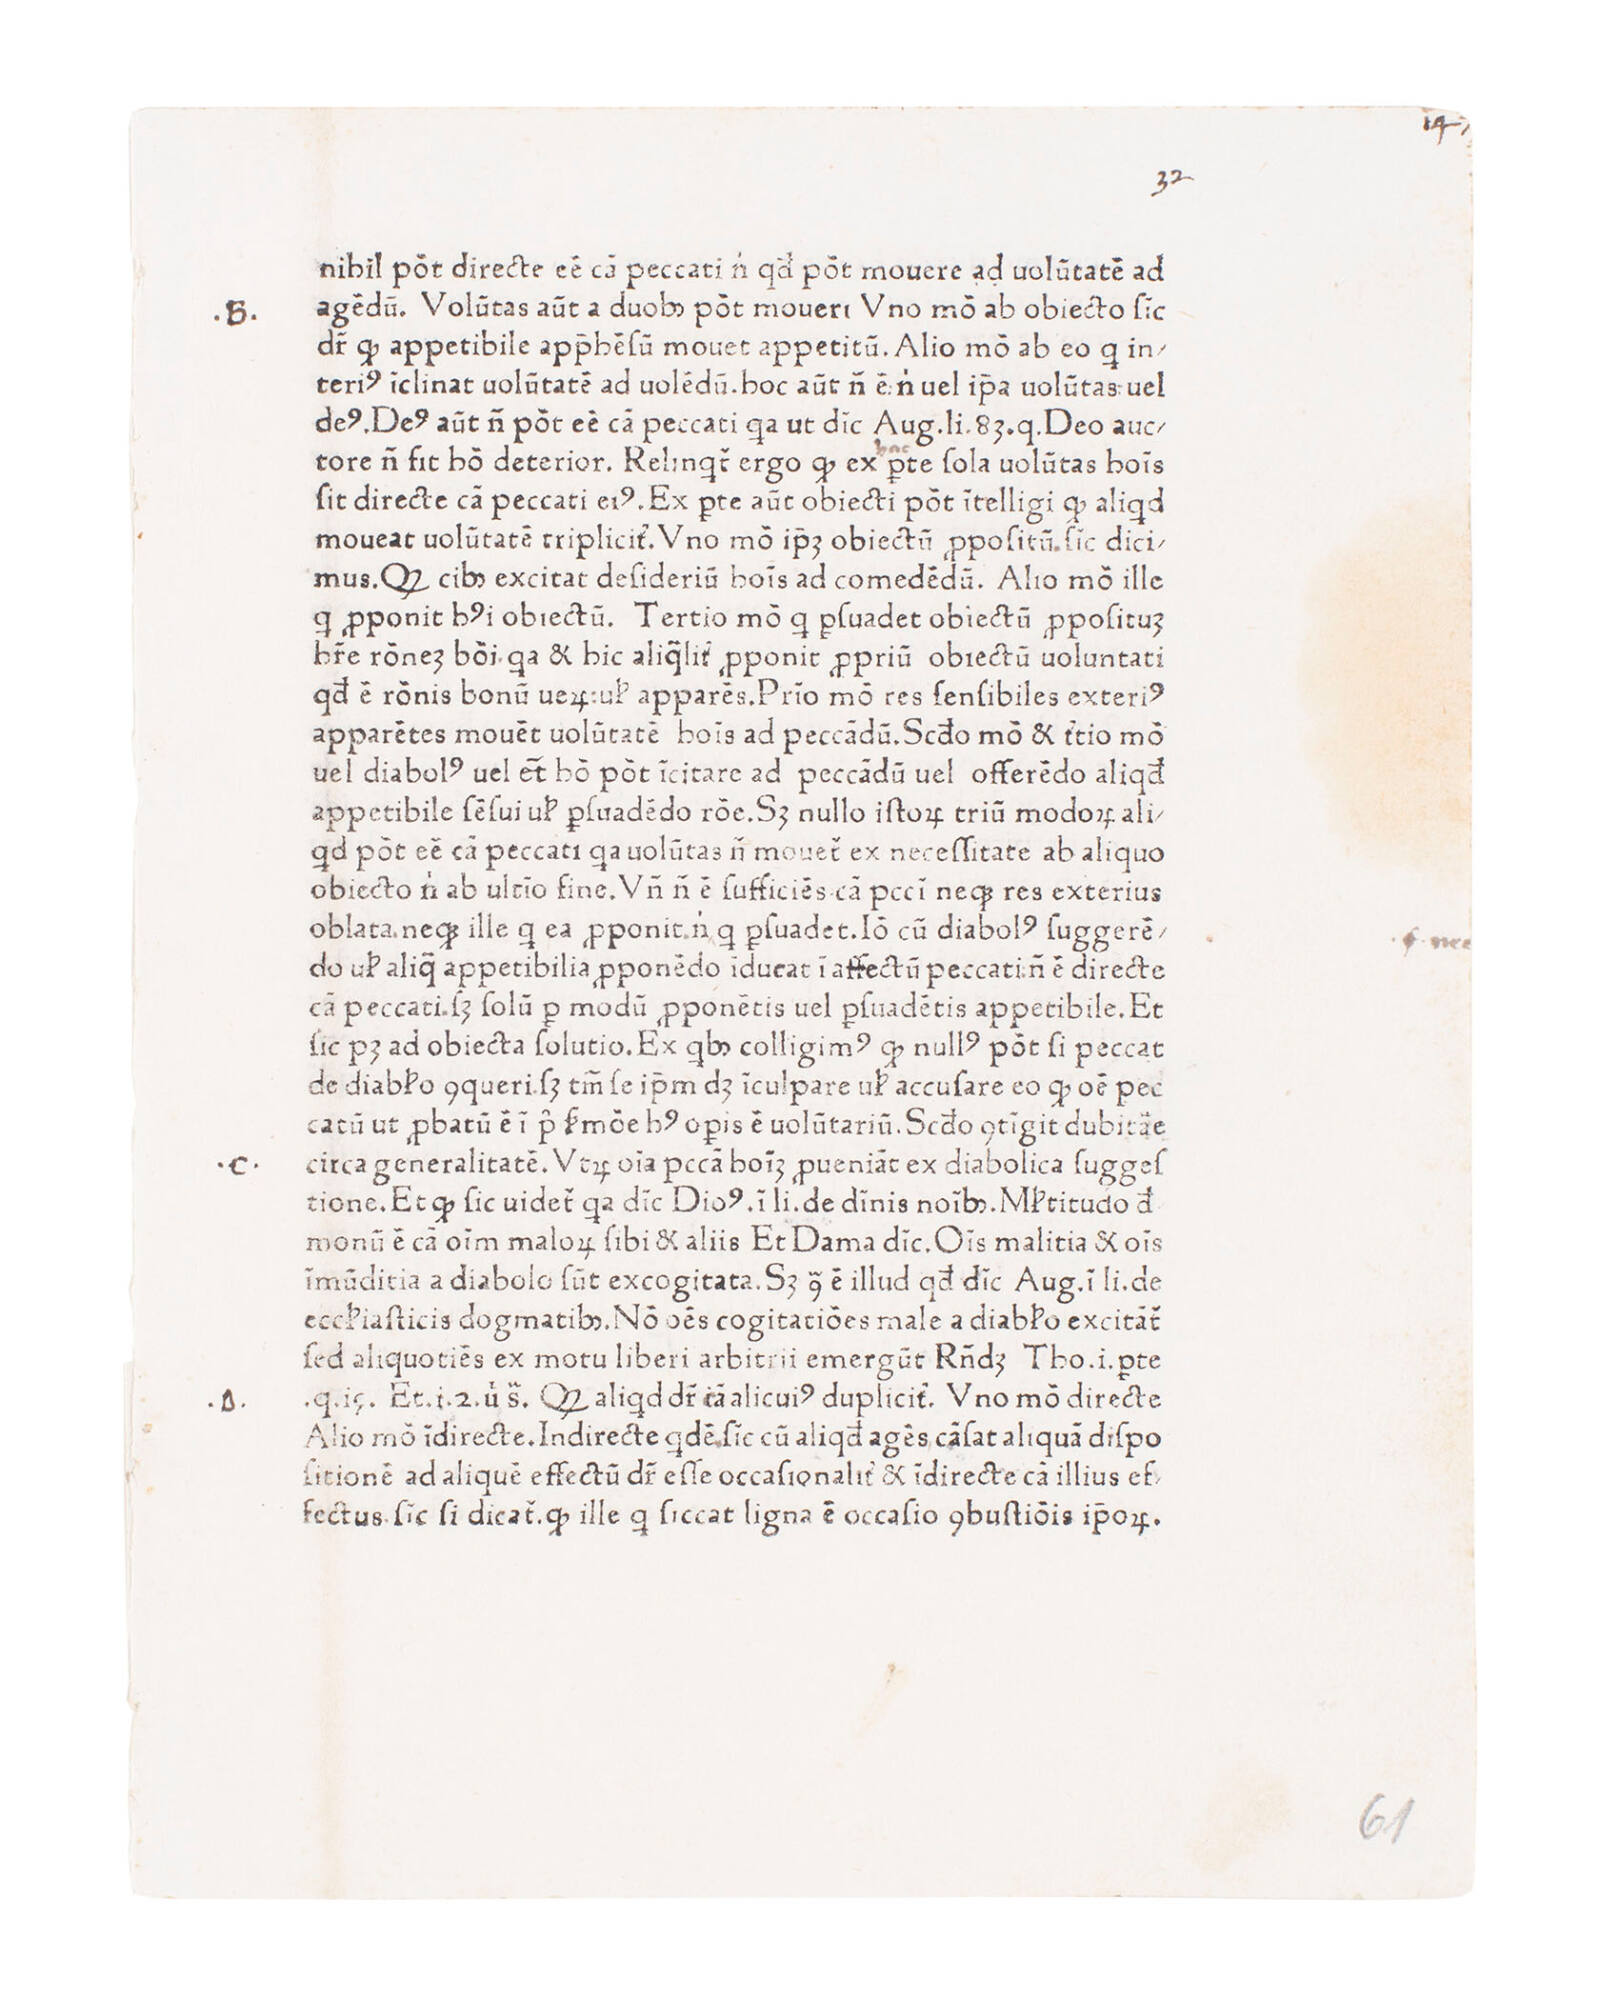 147
32
nihil pōt directe eē cā peccati n̓ qd̄ pōt mouere ad uolūtatē ad
.B. agēdū. Volūtas aūt a duobꝫ pōt moueri Vno mō ab obiecto ſīc
dr̄ ꝙ appetibile app̄hēſū mouet appetitū. Alio mō ab eo q in⸗
teriꝰ īclinat uolūtatē ad uolēdū. hoc aūt n̄ ē: n̓ uel ip̄a uolūtas: uel
deꝰ. Deꝰ aūt n̄ pōt eē cā peccati qa ut dīc Aug. li. 83. q. Deo auc⸗
tore n̄ fit hō deterior. Relinqr̄ ergo ꝙ ex hac ꝑte ſola uolūtas hoīs
ſit directe cā peccati eiꝰ. Ex ꝑte aūt obiecti pōt ītelligi ꝙ aliqd
moueat uolūtatē tripliciť. Vno mō ip̄ꝫ obiectū ꝓpoſitū. ſīc dici⸗
mus. Qꝫ cibꝫ excitat deſideriū hoīs ad comedēdū. Alio mō ille
q ꝓponit hꝰi obiectū. Tertio mō q ꝑſuadet obiectū ꝓpoſituꝫ
hr̄e rōneꝫ bōi. qa & hic aliq̄liť ꝓponit ꝓpriū obiectū uoluntati
qd̄ ē rōnis bonū ueꝝ: uł apparēs. Prīo mō res ſenſibiles exteriꝰ
apparētes mouēt uolūtatē hoīs ad peccādū. Scd̄o mō & ťtio mō
uel diabolꝰ uel et̄ hō pōt īcitare ad peccādū uel offerēdo aliqd̄
appetibile ſēſui uł ꝑſuadēdo rōe. Sꝫ nullo iſtoꝝ triū modoꝝ ali⸗
qd pōt eē cā peccati qa uolūtas n̄ mouet̄ ex neceſſitate ab aliquo
obiecto n̓ ab ultīo fine. Vn̄ n̄ ē ſufficiēs cā pccī neqꝫ res exterius
oblata. neqꝫ ille q ea ꝓponit. n̓ q ꝑſuadet. Iō cū diabolꝰ ſuggerē⸗
do uł aliq̄ appetibilia ꝓponēdo īducat ī affectū peccati: n̄ ē directe
cā peccati. ſꝫ ſolū ꝑ modū ꝓponētis uel ꝑſuadētis appetibile. Et
ſic pꝫ ad obiecta ſolutio. Ex qbꝫ colligimꝰ ꝙ nullꝰ pōt ſi peccat
de diabło ꝯqueri. ſꝫ tm̄ ſe ip̄m dꝫ īculpare uł accuſare eo ꝙ oē pec
catū ut ꝓbatū ē ī p̄ ſ̓mōe hꝰ oꝑis ē uolūtariū. Scd̄o ꝯtīgit dubitāe
.C. circa generalitatē. Vtꝝ oīa pccā hoīꝫ ꝓueniāt ex diabolica ſuggeſ
tione. Et ꝙ ſic uidet̄ qa dīc Dioꝰ. ī li. de dīnis noībꝫ. Młtitudo d̄
monū ē cā oīm maloꝝ ſibi & aliis Et Dama dīc. Oīs malitia & oīs
īmūditia a diabolo ſūt excogitata. Sꝫ ꝯ̄ ē illud qd̄ dīc Aug. ī li. de
eccłiaſticis dogmatibꝫ. Nō oēs cogitatiōes male a diabło excitāt̄
ſed aliquotiēs ex motu liberi arbitrii emergūt Rn̄dꝫ Tho. i. ꝑte
.D. .q. 15. Et. 1. 2. u̓ s̄. Qꝫ aliqd dr̄ cā alicuiꝰ dupliciť. Vno mō directe
Alio mō īdirecte. Indirecte qdē ſīc cū aliqd̄ agēs cāſat aliquā diſpo
ſitionē ad aliquē effectū dr̄ eſſe occaſionaliť & īdirecte cā illius ef⸗
fectus. ſīc ſi dicat̄. ꝙ ille q ſiccat ligna ē occaſio ꝯbuſtiōis ip̄oꝝ.
61